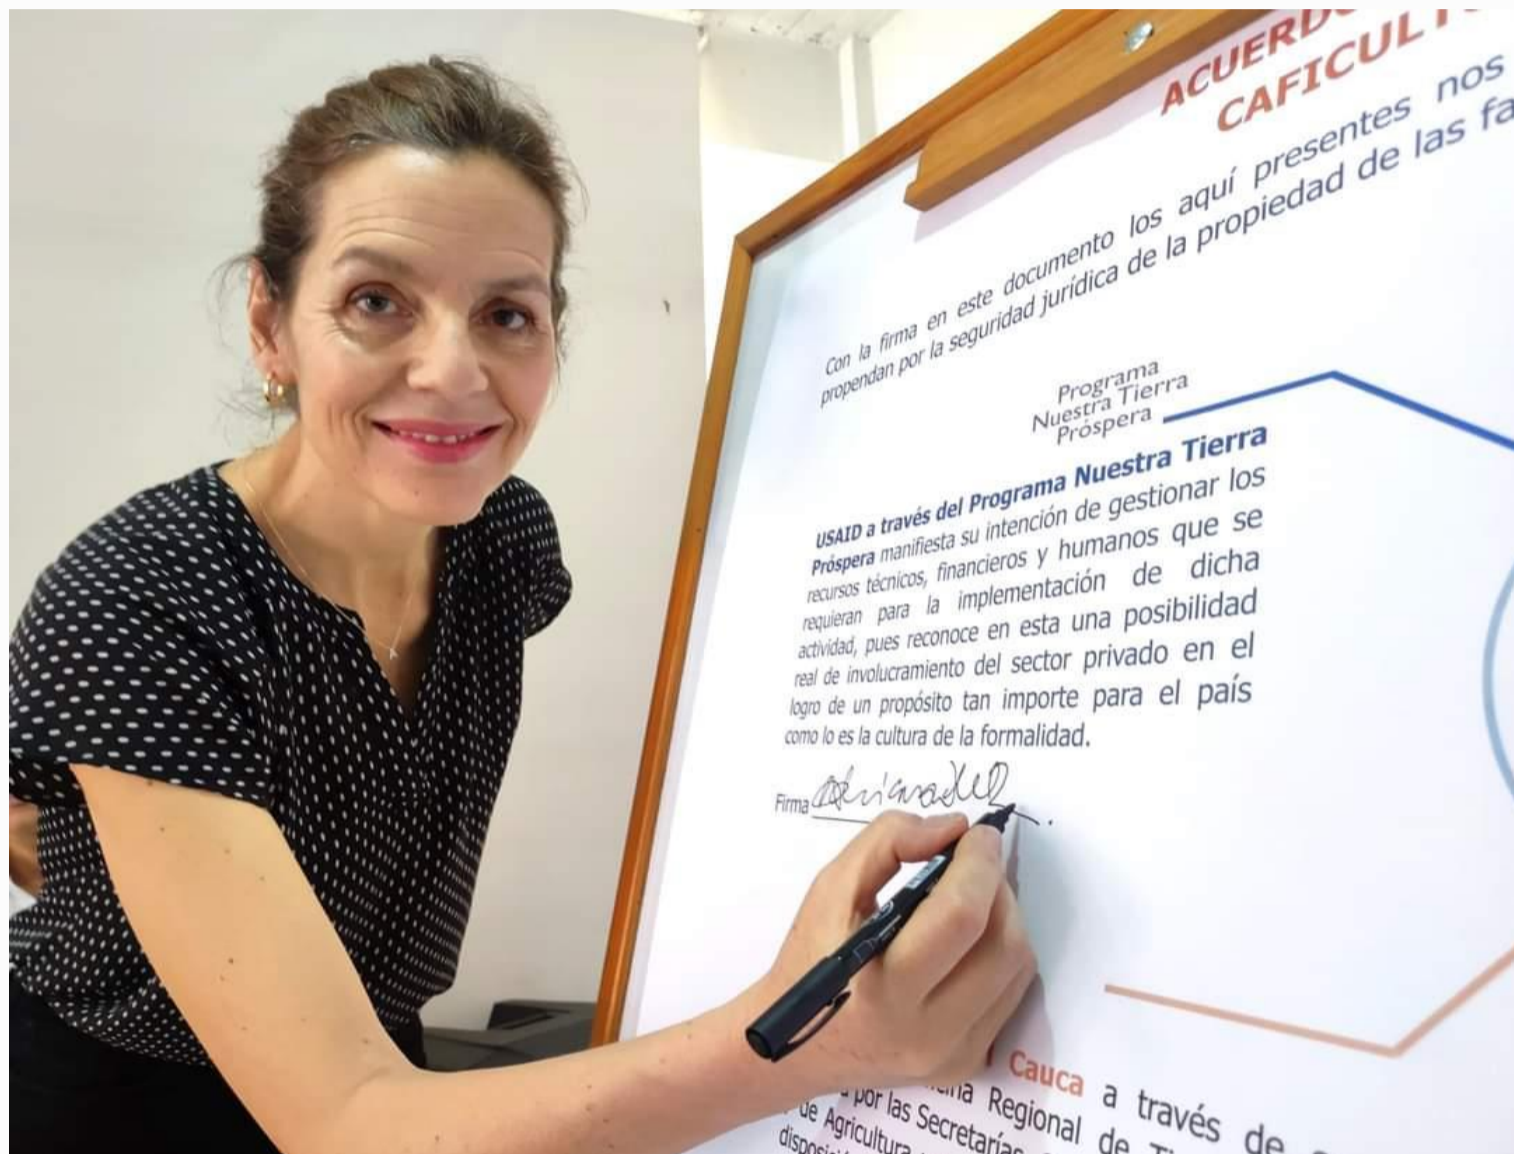 ACUERDO
CAFICULT
Con la firma en este documento los aquí presentes nos
propendan por la seguridad jurídica de la propiedad de las fa
Programa
Nuestra Tierra
Próspera
USAID a través del Programa Nuestra Tierra
Próspera manifiesta su intención de gestionar los
recursos técnicos, financieros y humanos que se
requieran para la implementación de dicha
actividad, pues reconoce en esta una posibilidad
real de involucramiento del sector privado en el
logro de un propósito tan importe para el país
como lo es la cultura de la formalidad.
Firma
Cauca a través de
Regional de
por las Secretarías
de Agricultura